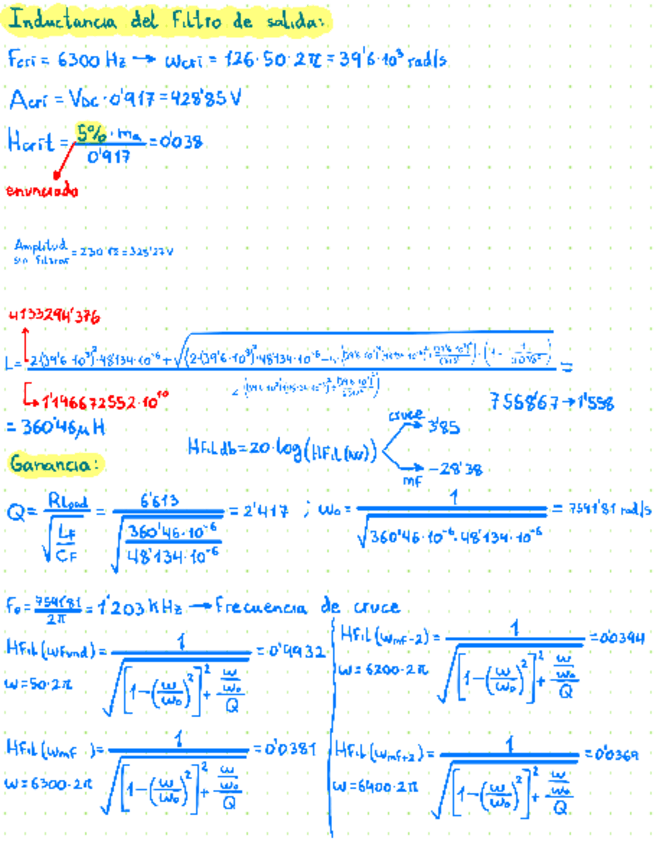 Inductancia del filtro de salida:
Fcri = 6300 Hz → ωcri = 126·50·2π = 39'6·10³ rad/s
Acri = VDC·0'917 = 428'85 V
Hcrit = 5%·ma / 0'917 = 0'038
enunciado
Amplitud sin filtrar = 230·√2 = 325'27 V
4133294'376
L = 2·(39'6·10³)²·48'134·10⁻⁶ + √(2·(39'6·10³)²·48'134·10⁻⁶ =
1'146672552·10¹⁰
756'867 → 1'558
= 360'46 μH
HFil db = 20·log(HFil(w))
cruce → 3'85
mf → -28'38
Ganancia:
Q = RLoad / √(LF/CF) = 6'613 / √(360'46·10⁻⁶ / 48'134·10⁻⁶) = 2'417 ; ω₀ = 1 / √(360'46·10⁻⁶·48'134·10⁻⁶) = 7591'81 rad/s
F₀ = 7591'81 / 2π = 1'203 kHz → Frecuencia de cruce
HFil(ωfund) = 1 / √([1-(ω/ω₀)²]² + (ω/ω₀)/Q) = 0'9932
ω = 50·2π
HFil(ωmf-2) = 1 / √([1-(ω/ω₀)²]² + (ω/ω₀)/Q) = 0'0394
ω = 6200·2π
HFil(ωmf) = 1 / √([1-(ω/ω₀)²]² + (ω/ω₀)/Q) = 0'0381
ω = 6300·2π
HFil(ωmf+2) = 1 / √([1-(ω/ω₀)²]² + (ω/ω₀)/Q) = 0'0369
ω = 6400·2π